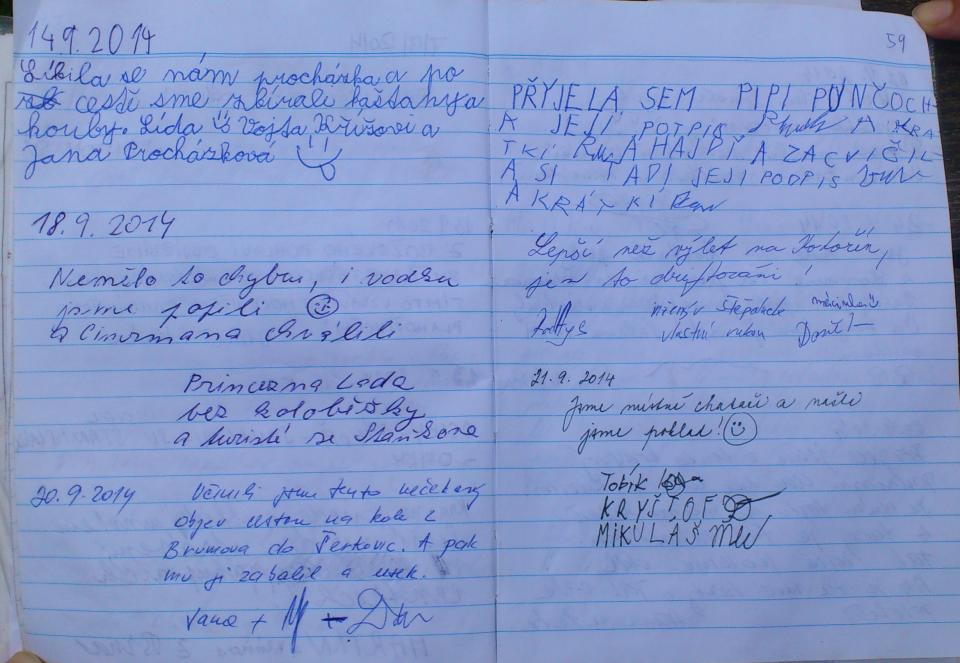 14.9.2014
Líbila se nám procházka a po
cestě sme zbírali kaštany a
houby. Lída Vojta Křížovi a
Jana Procházková
18.9.2014
Nemělo to chybu, i vodku
jsme popili
a Cimrmana chválili
Princezna Lada
bez koloběžky
a turisté ze Staňkova
20.9.2014
Učinili jsme tento nečekaný
objev cestou na kole z
Brumova do Terkovic. A pak
mu ji zabalil a utek.
Jana +
59
PŘYJELA SEM PIPI PUNČOCH
A JEJÍ POTPIS A KRÁ
TKÍ A HAJDÍ A ZACVIČIL
A SI TADI JEJÍ PODPIS
A KRÁTKÍ
Lepší než výlet na Kokořín,
je to
vlastní rukou
21.9.2014
Jsme místní chataři a našli
jsme poklad!
Tobík
KRYŠTOF
MIKULÁŠ